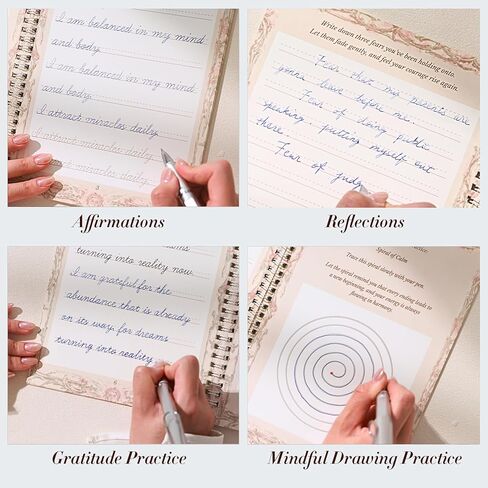 I am balanced in my mind
and body.
I am balanced in my mind
and body.
I attract miracles daily.
I attract miracles daily.
I attract miracles daily.
3
Affirmations
Write down three fears you've been holding onto.
Let them fade gently, and feel your courage rise again.
Fear that my parents are
gonna leave before me.
Fear of doing public
speaking, putting myself out
there
Fear of judg
Reflections
turning into reality now.
I am grateful for the
abundance that is already
on its way, for dreams
turning into reality
6
Gratitude Practice
Practice:
Spiral of Calm
Trace this spiral slowly with your pen.
Let the spiral remind you that every ending leads to
a new beginning, and your energy is always
flowing in harmony.
Mindful Drawing Practice